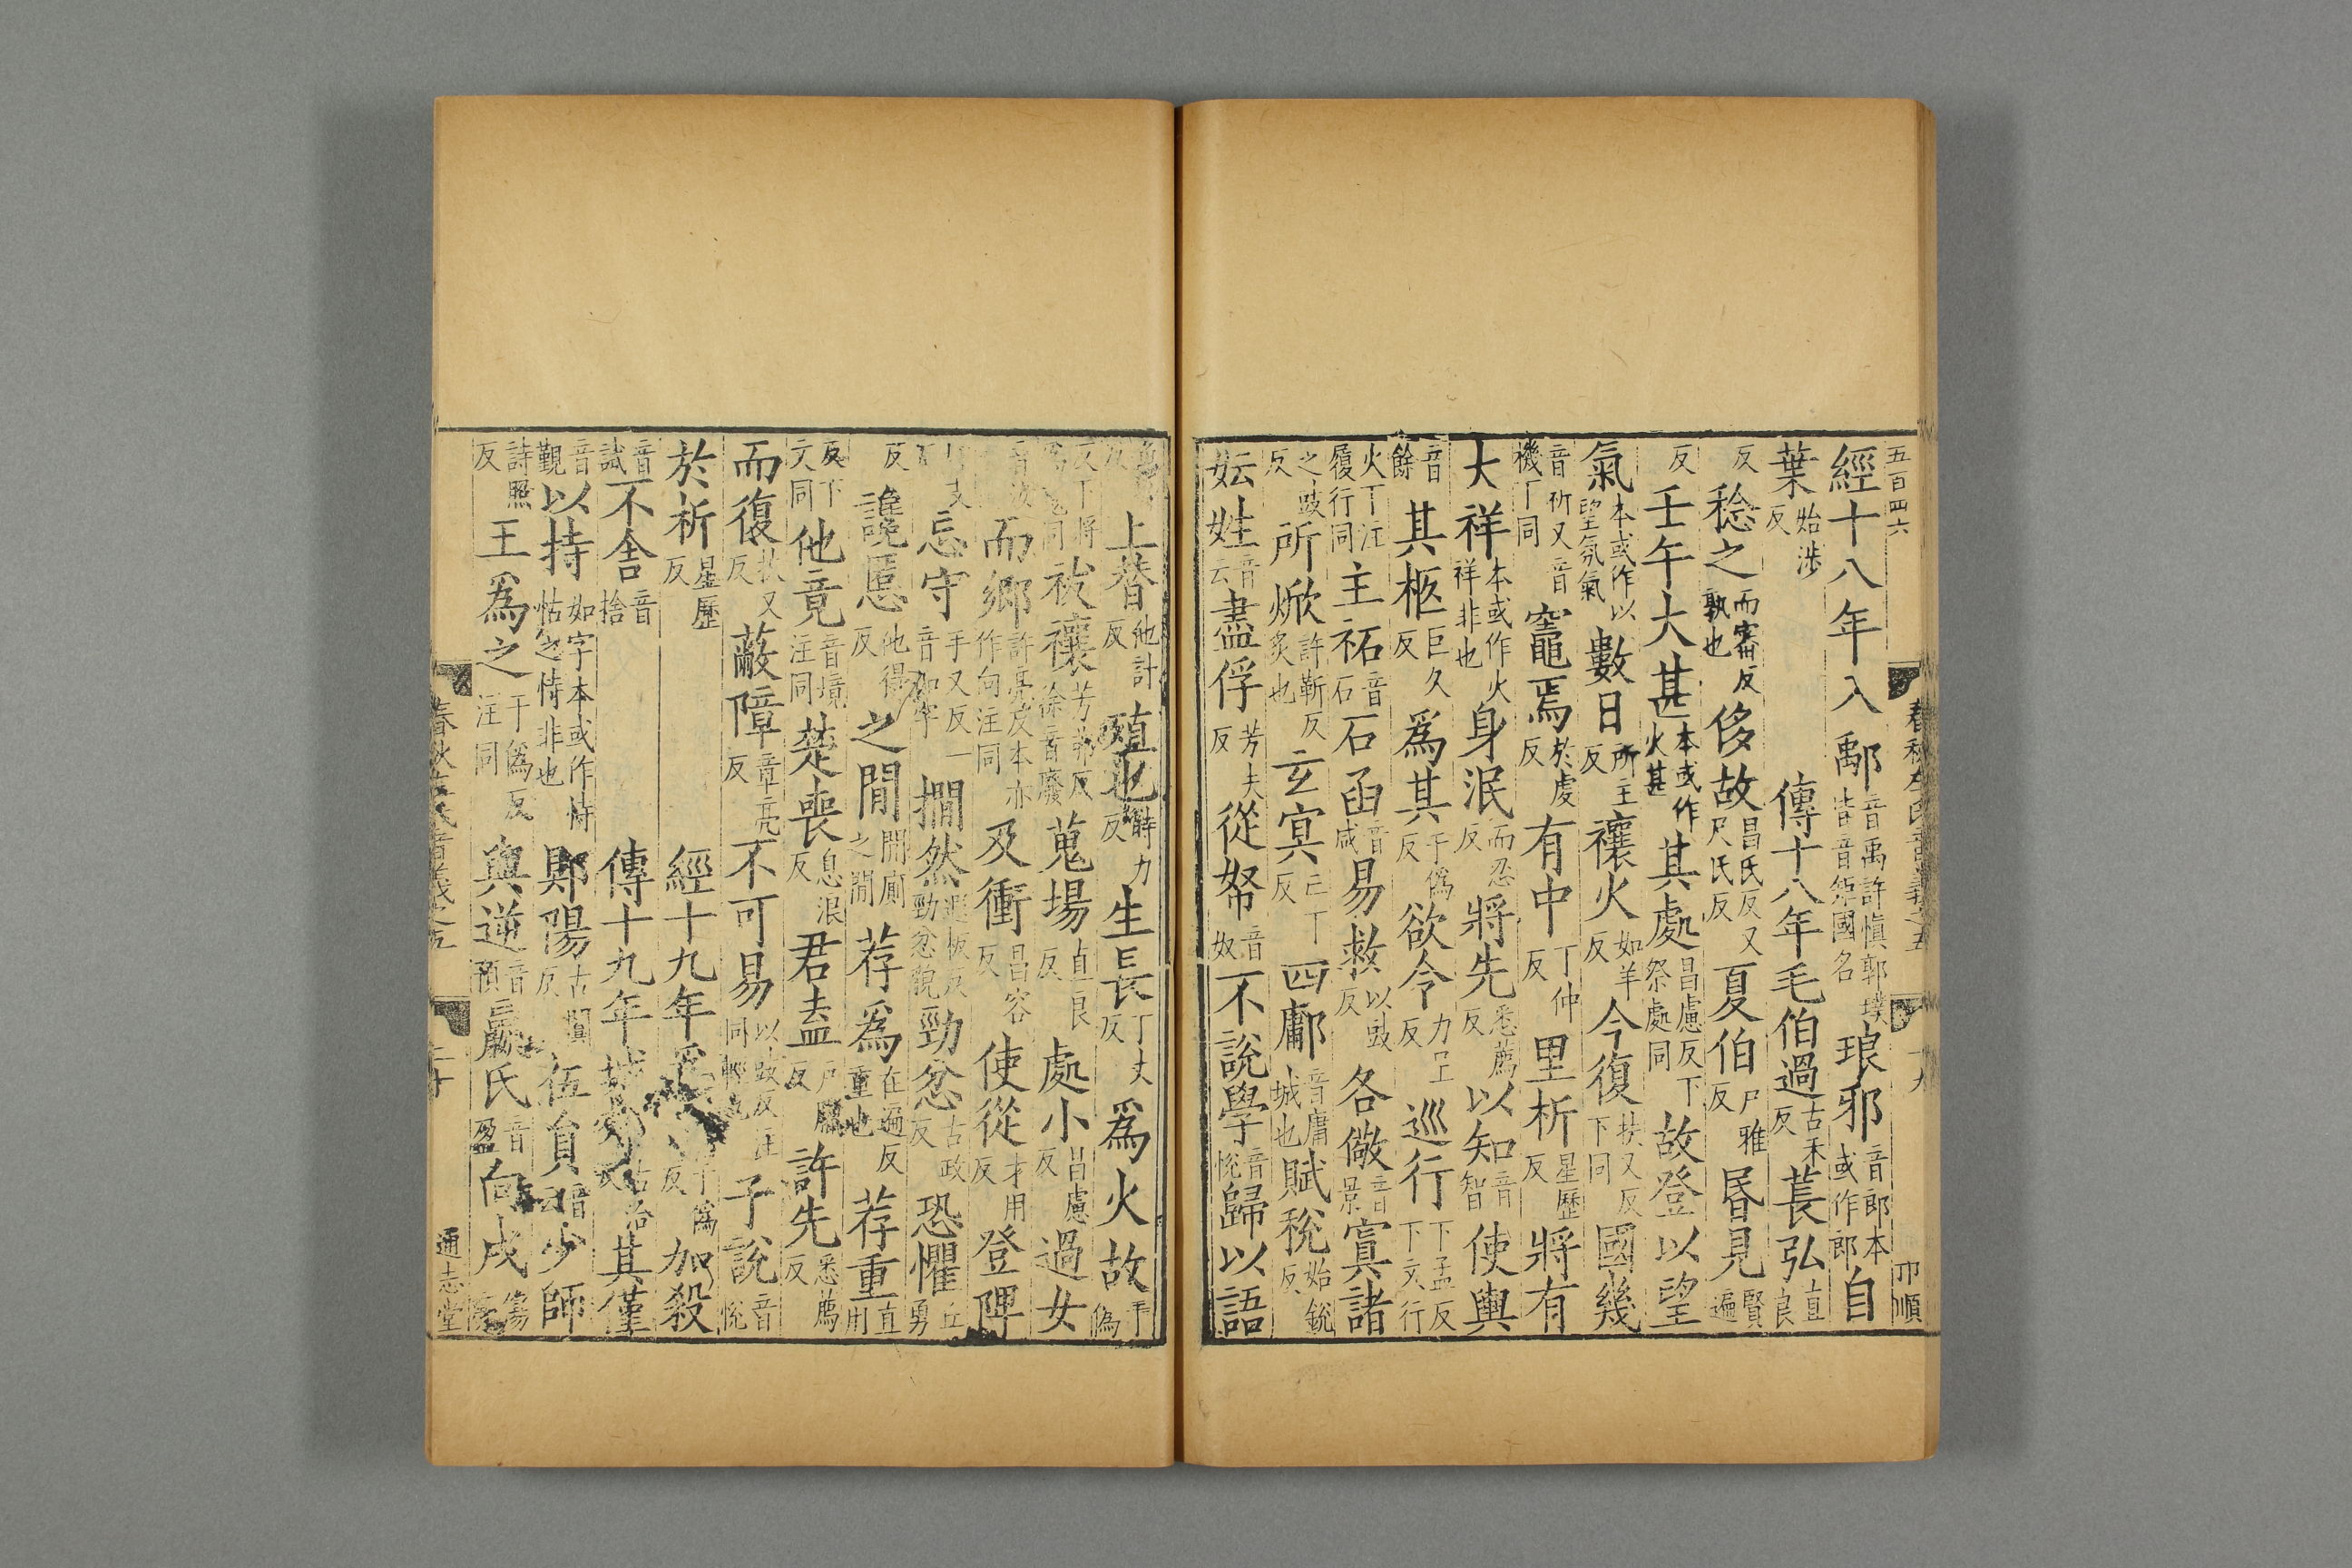 五百四六
春秋左氏音義之五
十九
卩順
經十八年入鄅音禹許慎郭璞皆音矩國名琅邪音郎本或作郎自
葉始涉反 傳十八年毛伯過古禾反萇弘直良
反稔之而審反孰也侈故昌氏反又尺氏反夏伯戸雅反昬見賢遍
反壬午大甚本或作火甚其處昌慮反下祭處同故登以望
氣本或作以望氛氣數日所主反禳火如羊反今復扶又反下同國幾
音祈又音機丁同竈焉於虔反有中丁仲反里析星歷反將有
大祥本或作火祥非也身泯而忍反將先悉薦反以知音智使輿
音餘其柩巨久反爲其于僞反欲令力呈反巡行下孟反下文行
火丁注履行同主祏音石石函音咸易救以豉反各儆音景寘諸
之豉反所焮許靳反炙也玄冥亡丁反四鄘音庸城也賦稅始銳反
妘姓音云盡俘芳夫反從帑音奴不說學音悅歸以語
上替他計反殖也時力反生長丁丈反爲火故于僞
反丁將爲同祓禳芳弗反徐音廢蒐場直良反處小昌慮反過女
而鄉許亮反本亦作向注同及衝昌容反使從才用反登陴
忘守手又反一音如字撊然遐板反勁忿貌勁忿古政反恐懼丘勇
反讒慝他得反之閒閒廁之閒荐爲在遍反重也荐重直用
反下文同他竟音境注同楚喪息浪反君盍戸臘反許先悉薦反
而復扶又反蔽障章亮反不可易以豉反注同輕也子說音悅
於析星歷反 經十九年爲于僞反加殺
音試不舍音捨 傳十九年城郟古洽反其僅
音覲以持如字本或作恃怙之恃非也郹陽古闃反伍員音云少師
詩照反王爲之于僞反注同與逆音預嬴氏音盈向戌傷
春秋左氏音義之五
二十
通志堂